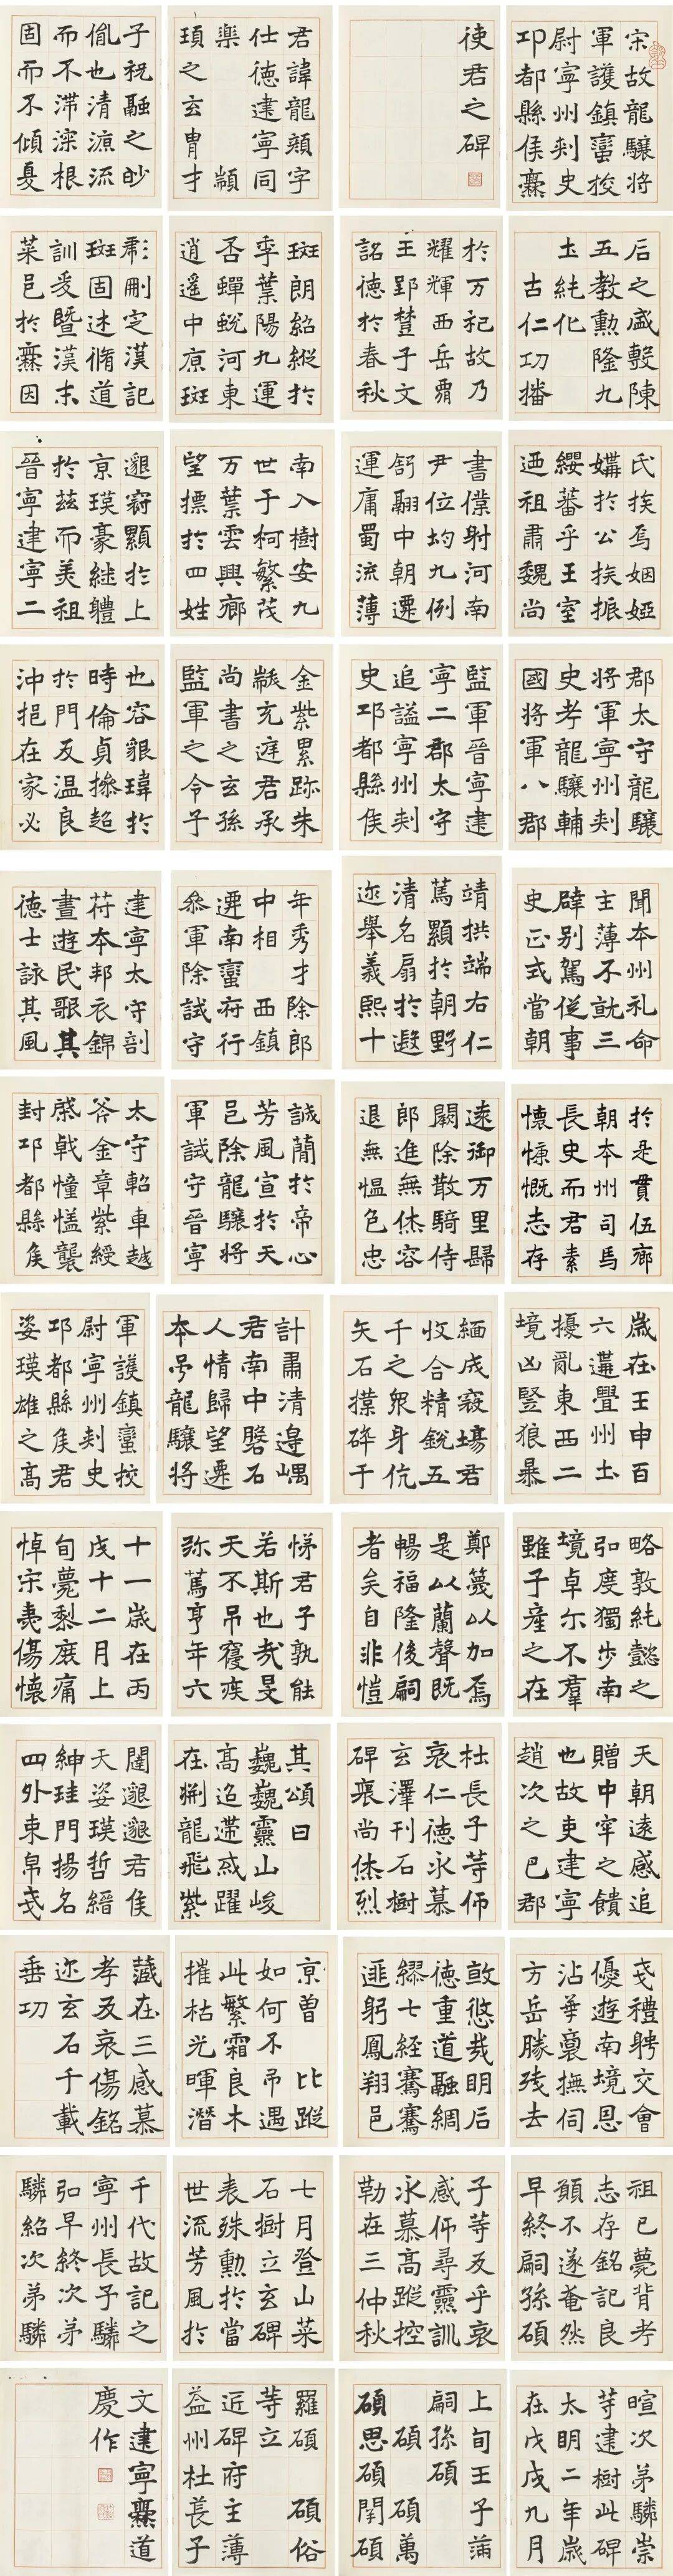 宋故龍驤將
軍護鎮蠻挍
尉寧州刾史
邛都縣侯爨
使君之碑
君諱龍顏字
仕徳建寧同
樂 顓
頊之玄胄才
子祝融之眇
胤也清源流
而不滯深根
固而不傾夏
后之盛敷陳
五教勳隆九
土純化
古仁功播
於万祀故乃
耀輝西岳霸
王郢楚子文
詺徳於春秋
斑朗紹縱於
季葉陽九運
否蟬蛻河東
逍遥中原斑
彪刪定漢記
斑固述脩道
訓爰暨漢末
菜邑於爨因
氏族焉姻婭
媾於公族振
纓蕃乎王室
迺祖肅魏尚
書僕射河南
尹位均九例
舒翮中朝遷
運庸蜀流薄
南入樹安九
世于柯繁茂
万葉雲興廊
望摽於四姓
邈窈顯於上
京瑛豪繼軆
於兹而美祖
晉寧建寧二
郡太守龍驤
將軍寧州刾
史考龍驤輔
國將軍八郡
監軍晉寧建
寧二郡太守
追謚寧州刾
史邛都縣侯
金紫累跡朱
黻充庭君承
尚書之玄孫
監軍之令子
也容貌瑋於
時倫貞操超
於門友温良
沖挹在家必
聞本州礼命
主薄不就三
辟别駕從事
史正式當朝
靖拱端右仁
篤顯於朝野
清名扇於遐
迩舉義熙十
年秀才除郎
中相 西鎮
遷南蠻府行
叅軍除試守
建寧太守剖
苻本邦衣錦
晝遊民歌其
徳士詠其風
於是貫伍廊
朝本州司馬
長史而君素
懷慷慨志存
遠御万里歸
闕除散騎侍
郎進無烋容
退無愠色忠
誠蕳於帝心
芳風宣於天
邑除龍驤將
軍試守晉寧
太守軺車越
斧金章紫綬
戚戟幢㡋襲
封邛都縣侯
歳在壬申百
六遘舋州土
擾亂東西二
境凶豎狼暴
緬成寇塲君
收合精銳五
千之衆身伉
矢石撲碎于
計肅清邉嵎
君南中磐石
人情歸望遷
本号龍驤將
軍護鎮蠻挍
尉寧州刾史
邛都縣侯君
姿瑛雄之髙
略敦純懿之
弘度獨步南
境卓尓不羣
雖子産之在
鄭篾以加焉
是以蘭聲既
暢福隆後嗣
者矣自非愷
悌君子孰能
若斯也㦲旻
天不吊寝疾
弥篤亨年六
十一歲在丙
戌十二月上
旬薨黎庶痛
悼宋夷傷懷
天朝遠感追
贈中牢之饋
也故吏建寧
趙次之巴郡
杜長子等仰
哀仁徳永慕
玄澤刊石樹
碑襃尚烋烈
其頌曰
巍巍靈山峻
髙迢遰或躍
在渊龍飛紫
闥邈邈君侯
天姿瑛哲縉
紳珪門揚名
四外束帛戔
戔禮聘交會
優遊南境恩
沾華裔撫伺
方岳勝殘去
敦慫㦲明后
徳重道融綢
繆七經騫騫
匪躬鳳翔邑
京曽 比蹤
如何不吊遇
此繁霜良木
摧枯光暉潜
藏在三感慕
孝友哀傷銘
迩玄石千載
垂功
祖已薨背考
志存銘記良
願不遂奄然
早終嗣孫碩
子等友乎哀
感仰尋靈訓
永慕髙蹤控
勒在三仲秋
七月登山菜
石樹立玄碑
表殊勳於當
世流芳風於
千代故記之
寧州長子驎
弘早終次弟
驎紹次弟驎
暄次弟驎崇
等建樹此碑
太明二年歳
在戊戌九月
上旬壬子蒲
嗣孫碩
碩 碩萬
碩思碩閗碩
羅碩 碩俗
等立
近碑府主薄
益州杜萇子
文建寧爨道
慶作